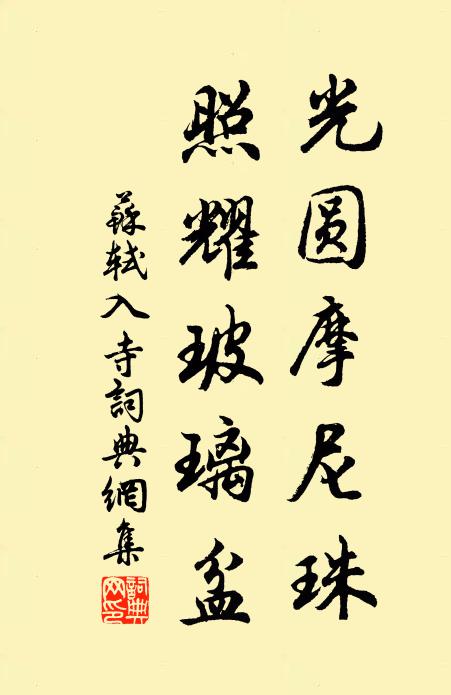 光圆摩尼珠
照耀玻璃盆
蘇軾入寺詞典網集
詞典
网印